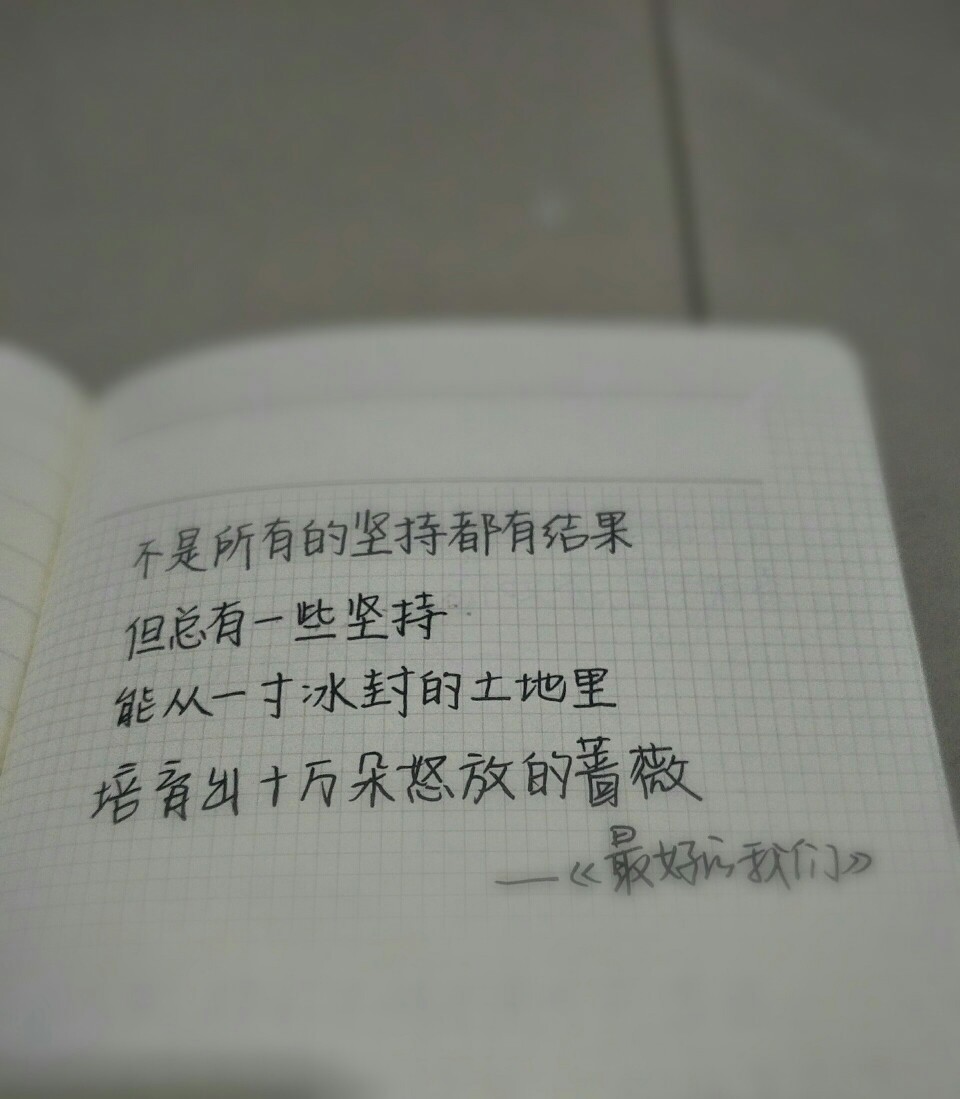 不是所有的坚持都有结果
但总有一些坚持
能从一寸冰封的土地里
培育出十万朵怒放的蔷薇
——《最好的我们》